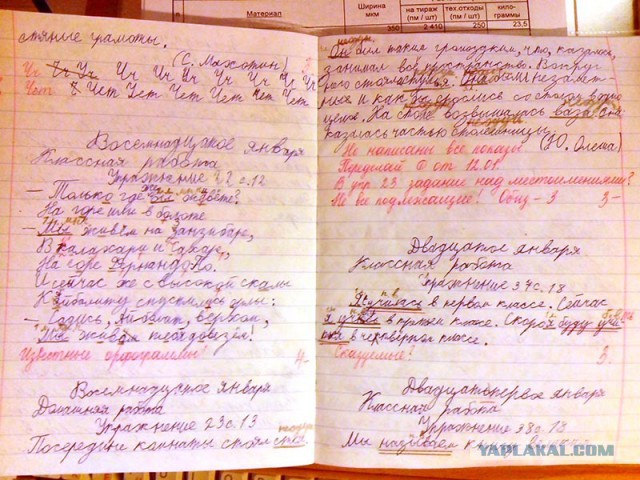 Материал
Ширина мкм
на тираж (пм / шт)
тех.отходы (пм / шт)
кило- граммы
350 2 410 250 23,5
стяные грамоты.
(С. Махотин)
Чч Чч Чч Чч Чч Чч Чч Чч Чч
Чет Чет Чет Чет Чет Чет Чет
Восемнадцатое января
Классная работа
Упражнение 22 с.12
– Только где вы живёте?
На горе или в болоте
– Мы живём на Занзибар,
В Калахари и Сахар,
На горе Фернандо По.
И сейчас же с высокой скалы
К Айболиту спустились орлы:
– Садись, Айболит, верхом,
Мы живом тебя довезём!
Известные орфограммы! 4-
Восемнадцатое января
Домашняя работа
Упражнение 23 с.13
Посередине комнаты стоял стол.
Он был таким громоздким, что, казалось,
занимал всё пространство. Вокруг
него стояли стулья.
ных и как
На столе возвышалась ваза. Она
казалась частью столешницы.
(Ю. Олеша)
Не написаны все
от 12.01.
В упр 23 задание над местоимениями?
Не все подлежащие! Общ - 3 3-
Двадцатое января
Классная работа
Упражнение 37 с.18
Я училась в первом классе. Сейчас
я учусь в третьем классе. Скоро я буду учи-
ться в четвёртом классе.
Сказуемые! 3.
Двадцатьпервое января
Классная работа
Упражнение 38 с.18
Мы называем
YAPLAKAL.COM